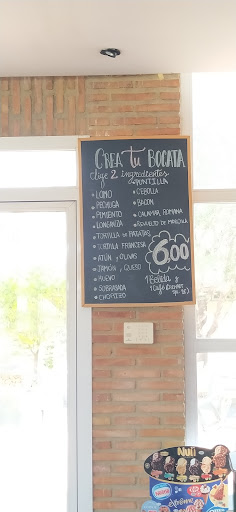 CREA Tu BOCATA
elige 2 ingredientes
• LOMO
• PECHUGA
• PIMIENTO
• LONGANIZA
• TORTILLA DE PATATAS
• TORTILLA FRANCESA
• ATÚN Y OLIVAS
• JAMÓN, QUESO
• HUEVO
• SOBRASADA
• CHORIZO
• PUNTILLA
• CEBOLLA
• BACON
• CALAMAR ROMANA
• REVUELTO DE MORCILLA
6,00
1 Bebida y
1 Café
Nuii
Nestlé